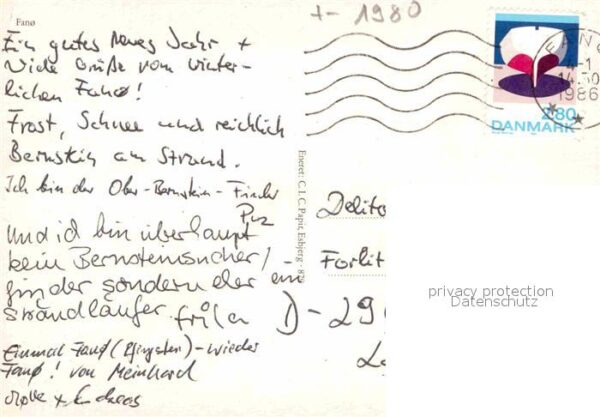 Fanø
+- 1980
Ein gutes neues Jahr +
viele Grüße vom winter-
lichen Fanø!
Frost, Schnee und reichlich
Bernstein am Strand.
Ich bin der Ober-Bernstein-Finder
Und ich bin überhaupt
kein Bernsteinsucher/-
finder sondern eher ein
Strandläufer.
Einmal Fanø (Pfingsten) - wieder
Fanø! von Meinhard
+ Andreas
Eneret: C.I.C. Papir, Esbjerg
FANØ
4-1
1986
280
DANMARK
Forlit
D-29
privacy protection
Datenschutz